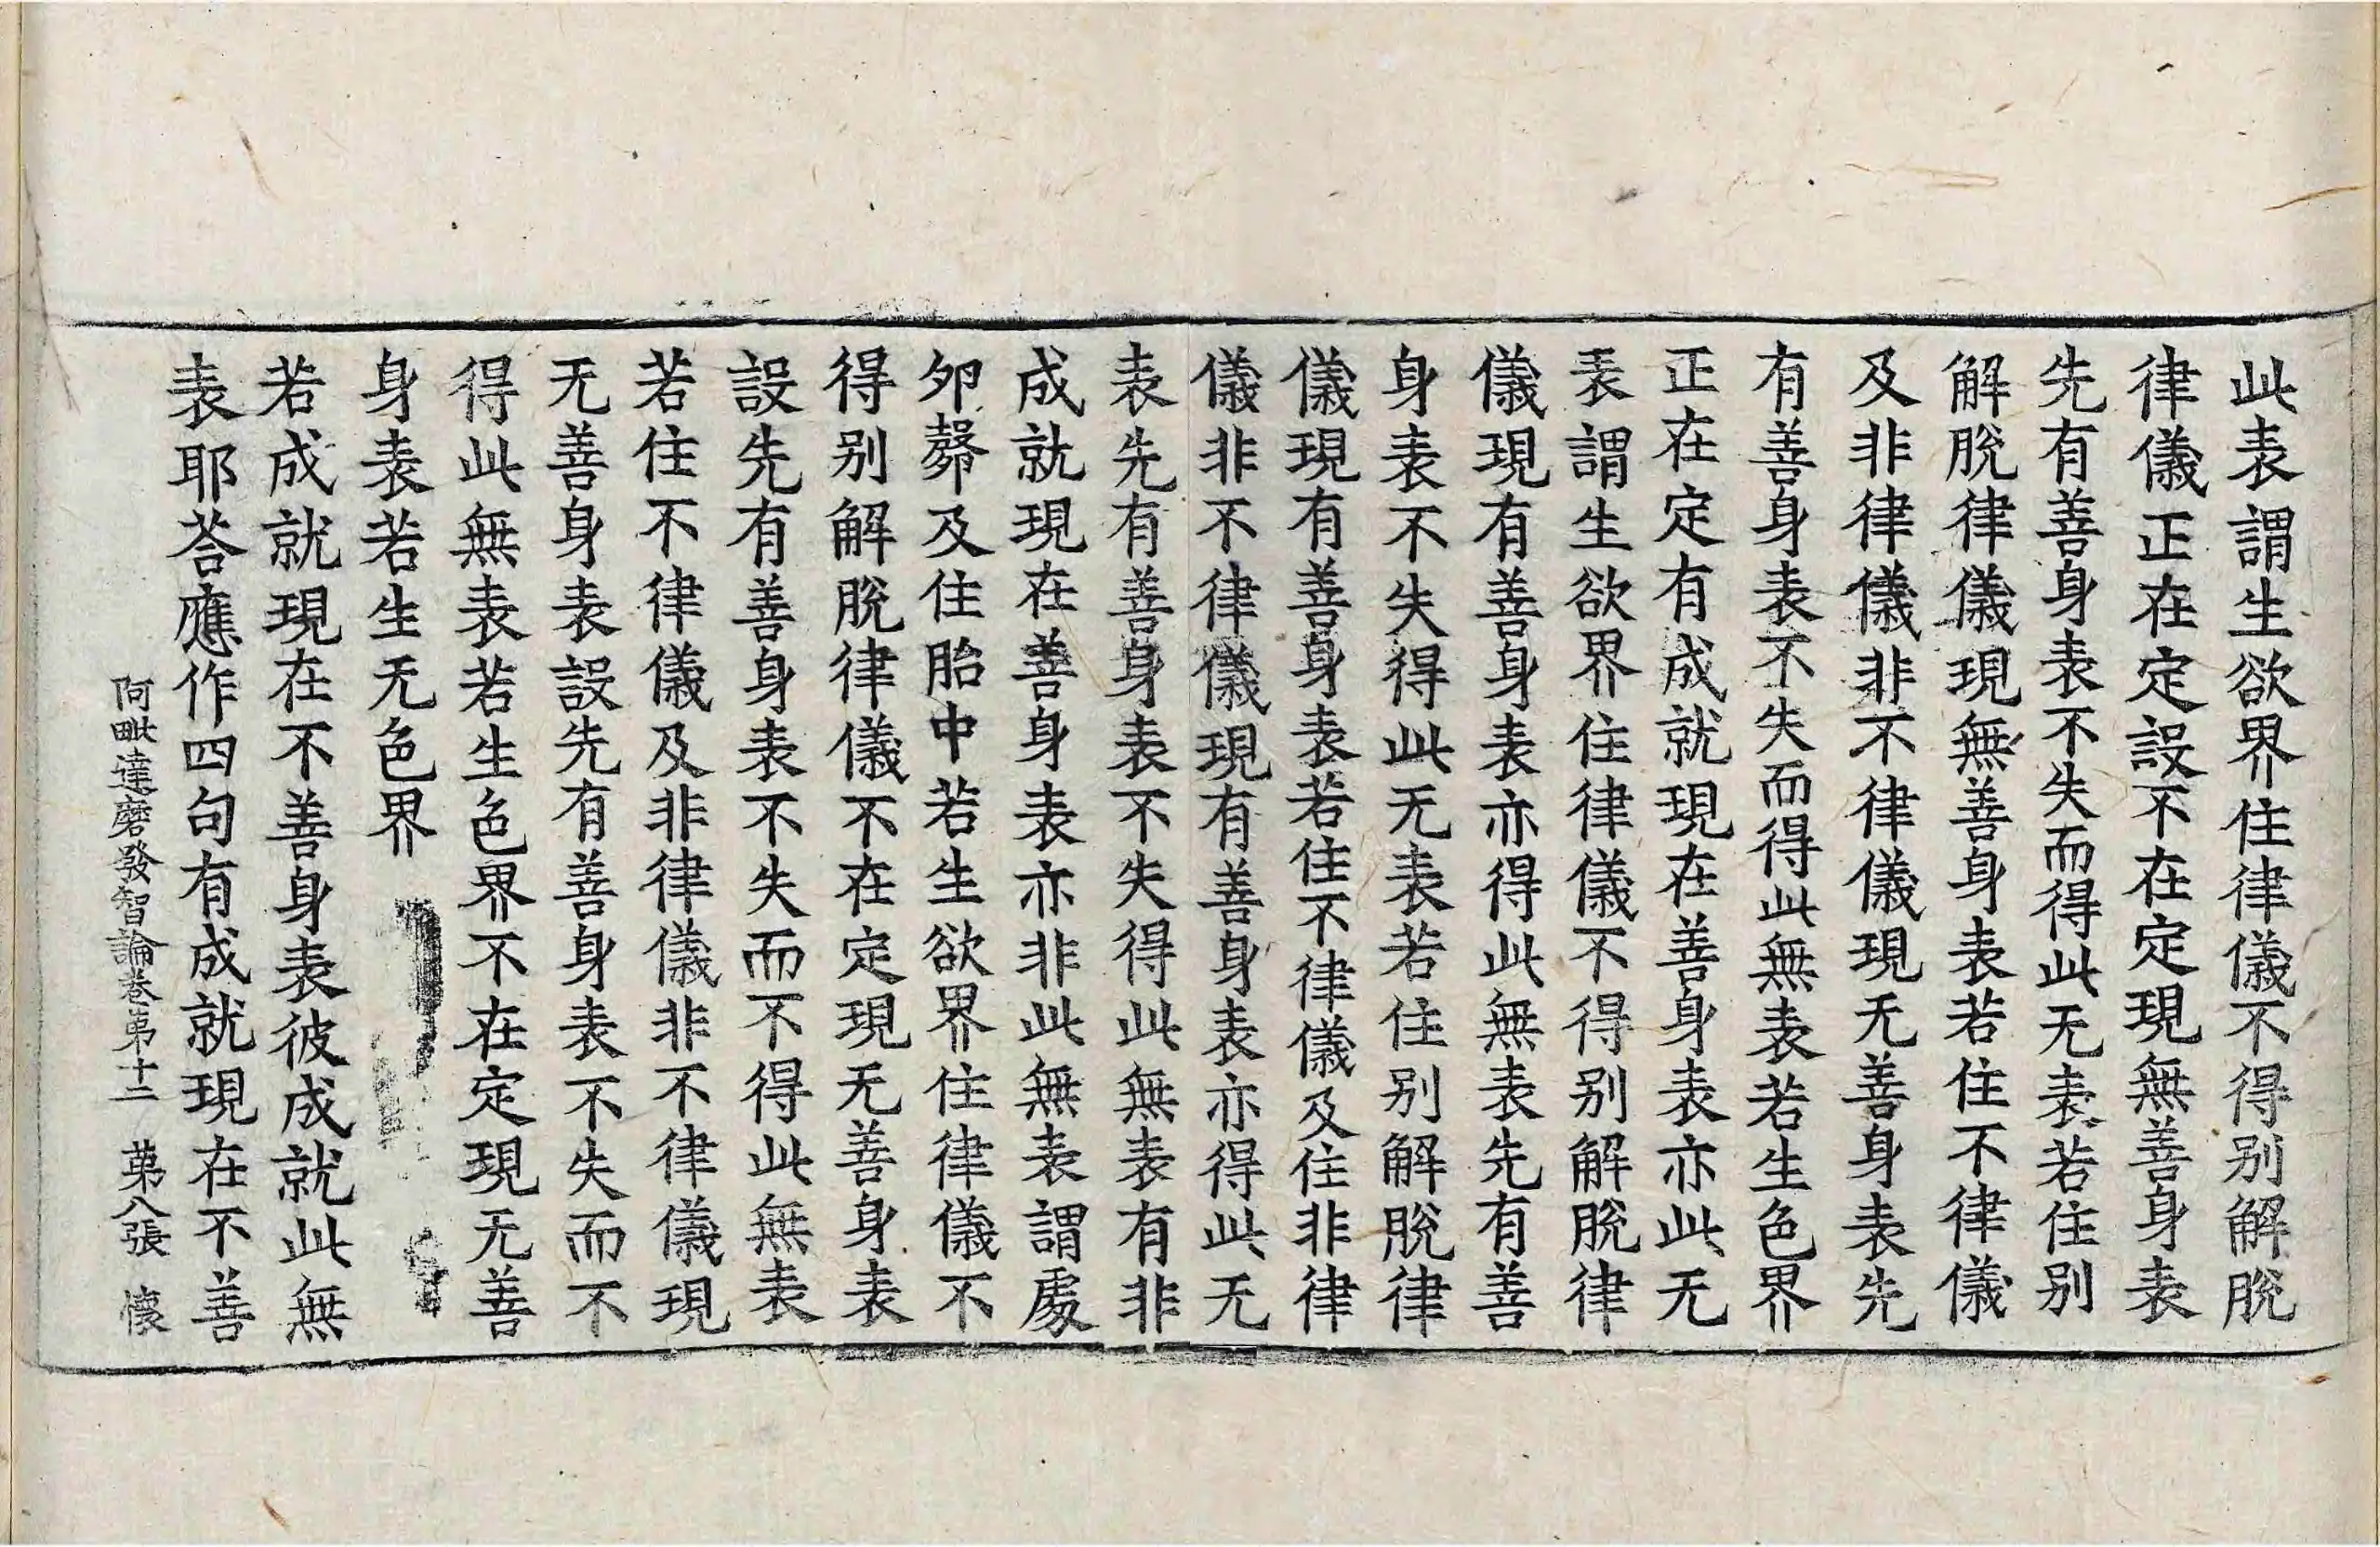 此表謂生欲界住律儀不得别解脫
律儀正在定設不在定現無善身表
先有善身表不失而得此无表若住别
解脫律儀現無善身表若住不律儀
及非律儀非不律儀現无善身表先
有善身表不失而得此無表若生色界
正在定有成就現在善身表亦此无
表謂生欲界住律儀不得别解脫律
儀現有善身表亦得此無表先有善
身表不失得此无表若住别解脫律
儀現有善身表若住不律儀及住非律
儀非不律儀現有善身表亦得此无
表先有善身表不失得此無表有非
成就現在善身表亦非此無表謂處
夘㲉及住胎中若生欲界住律儀不
得别解脫律儀不在定現无善身表
設先有善身表不失而不得此無表
若住不律儀及非律儀非不律儀現
无善身表設先有善身表不失而不
得此無表若生色界不在定現无善
身表若生无色界
若成就現在不善身表彼成就此無
表耶荅應作四句有成就現在不善
阿毗達磨發智論卷第十二 第八張 懷